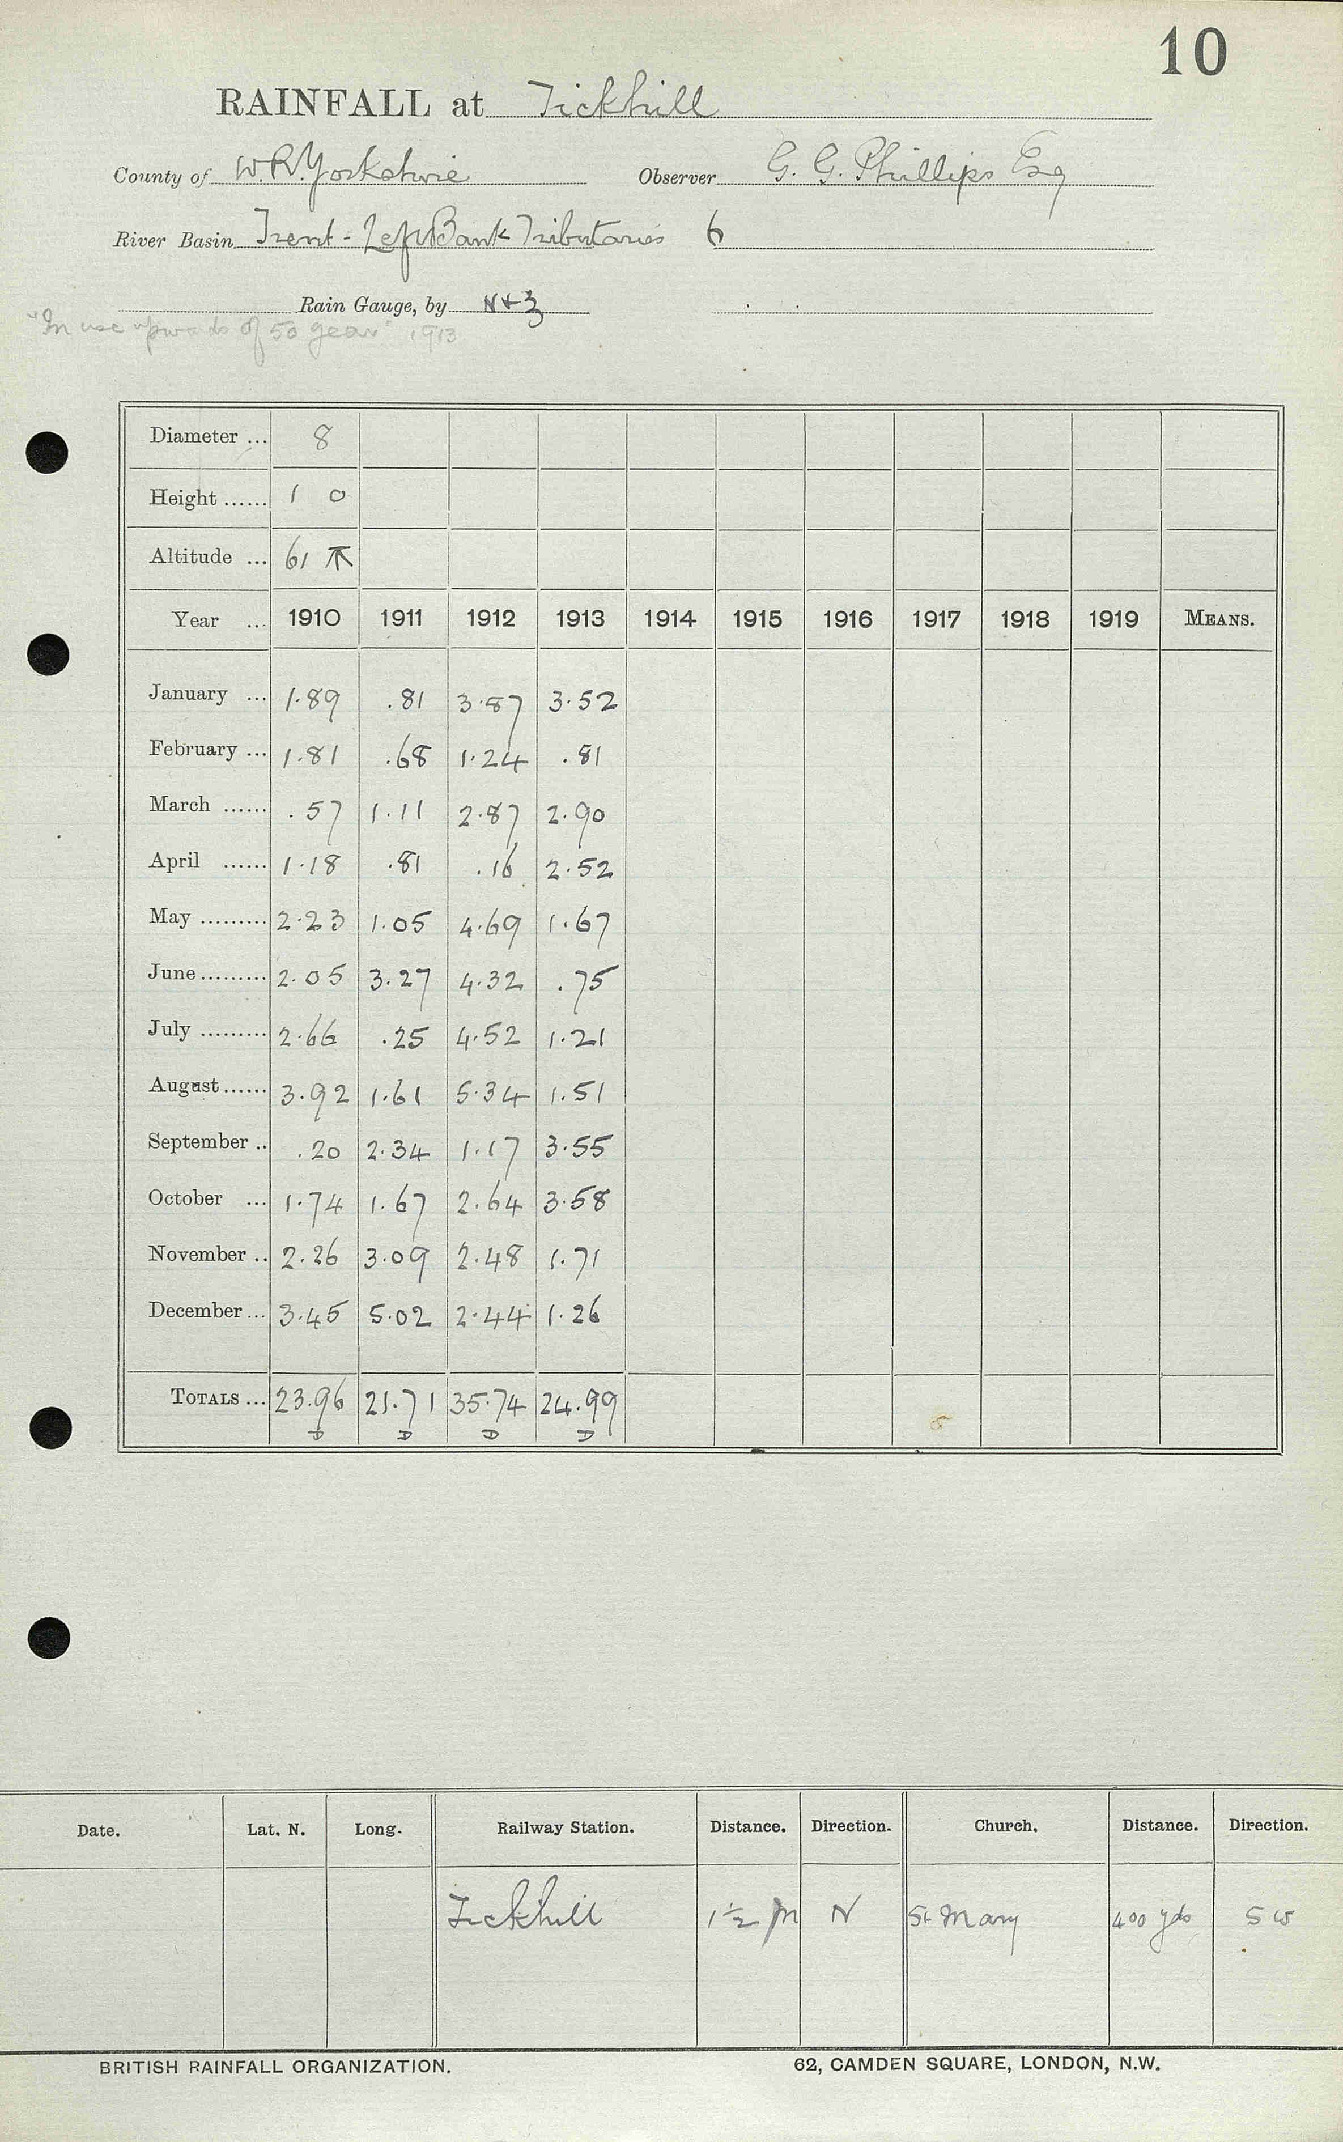 10
RAINFALL at Tickhill
County of W.R. Yorkshire Observer G. G. Phillips Esq
River Basin Trent - Left Bank Tributaries 6
Rain Gauge, by N+Z
"In use upwards of 50 years" 1913
Diameter ... 8
Height ...... 1 0
Altitude ... 61
Year ... 1910 1911 1912 1913 1914 1915 1916 1917 1918 1919 MEANS.
January ... 1.89 .81 3.87 3.52
February ... 1.81 .68 1.24 .81
March ...... .57 1.11 2.87 2.90
April ...... 1.18 .81 .16 2.52
May ......... 2.23 1.05 4.69 1.67
June ......... 2.05 3.27 4.32 .75
July ......... 2.66 .25 4.52 1.21
August ...... 3.92 1.61 5.34 1.51
September .. .20 2.34 1.17 3.55
October ... 1.74 1.67 2.64 3.58
November .. 2.26 3.09 2.48 1.71
December ... 3.45 5.02 2.44 1.26
TOTALS ... 23.96 21.71 35.74 24.99
D D D D
Date. Lat. N. Long. Railway Station. Distance. Direction. Church. Distance. Direction.
Tickhill 1½ m N St Mary 400 yds SW
BRITISH RAINFALL ORGANIZATION. 62, CAMDEN SQUARE, LONDON, N.W.